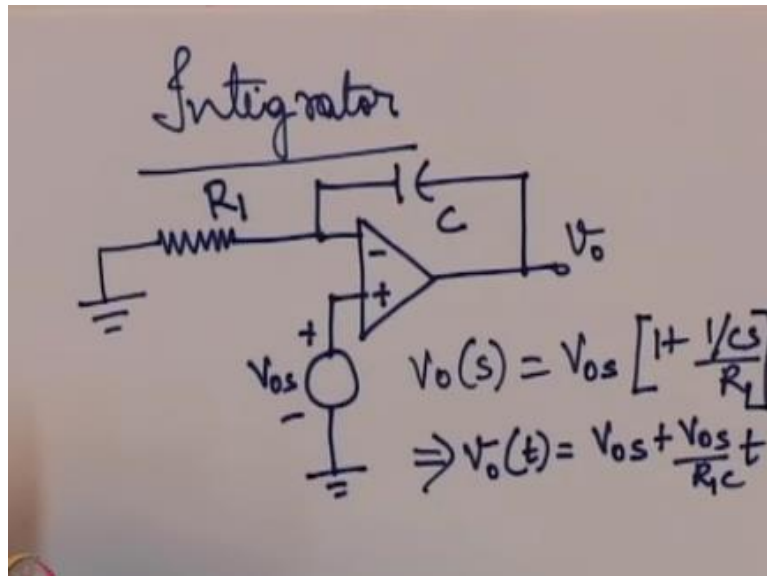 Intigrator
R1
C
-
+
Vo
+
Vos
-
Vo(s) = Vos [1+ 1/Cs / R1]
⇒ Vo(t) = Vos + Vos / R1C t